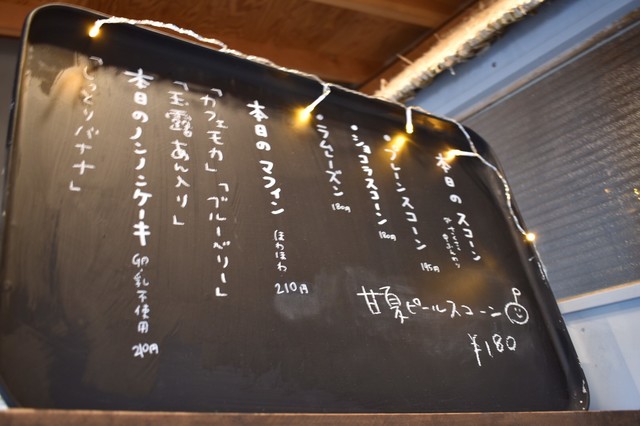 本日のスコーン
・プレーンスコーン 145円
・ショコラスコーン 180円
・ラムレーズン 180円
甘夏ピールスコーン
¥180
本日のマフィン ほわほわ 210円
「カフェモカ」「ブルーベリー」
「玉露あん入り」
本日のノンノンケーキ 卵・乳不使用 210円
「しっとりバナナ」